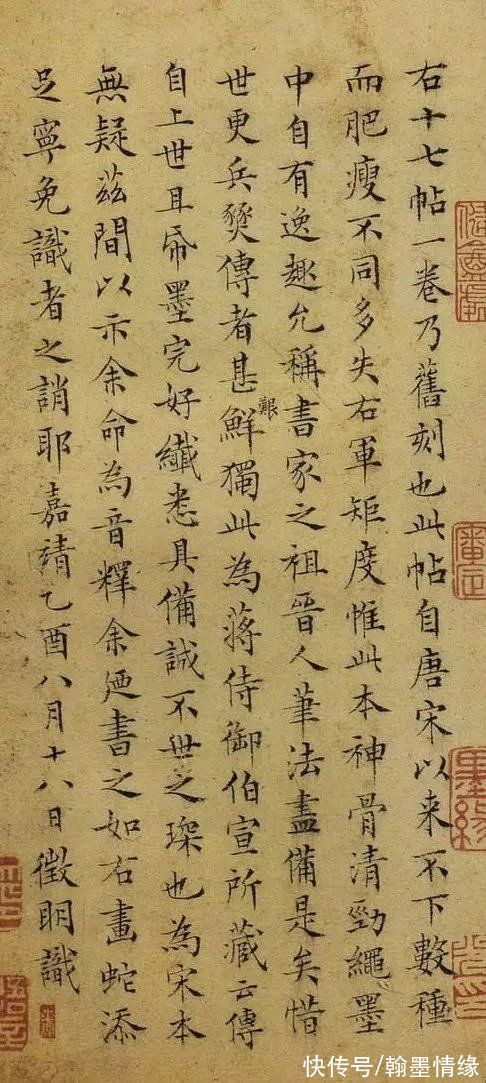 右十七帖一卷乃舊刻也此帖自唐宋以来不下數種
而肥瘦不同多失右軍矩度惟此本神骨清勁繩墨
中自有逸趣允稱書家之祖晉人筆法盡備是矣惜
世更兵燹傳者甚鮮獨此為蔣侍御伯宣所藏云傳
艱
自上世且帋墨完好纖悉具備誠不世之琛也為宋本
無疑茲間以示余命為音釋余乃書之如右畫蛇添
足寧免識者之誚耶嘉靖乙酉八月十八日徵明識
快传号/翰墨情缘